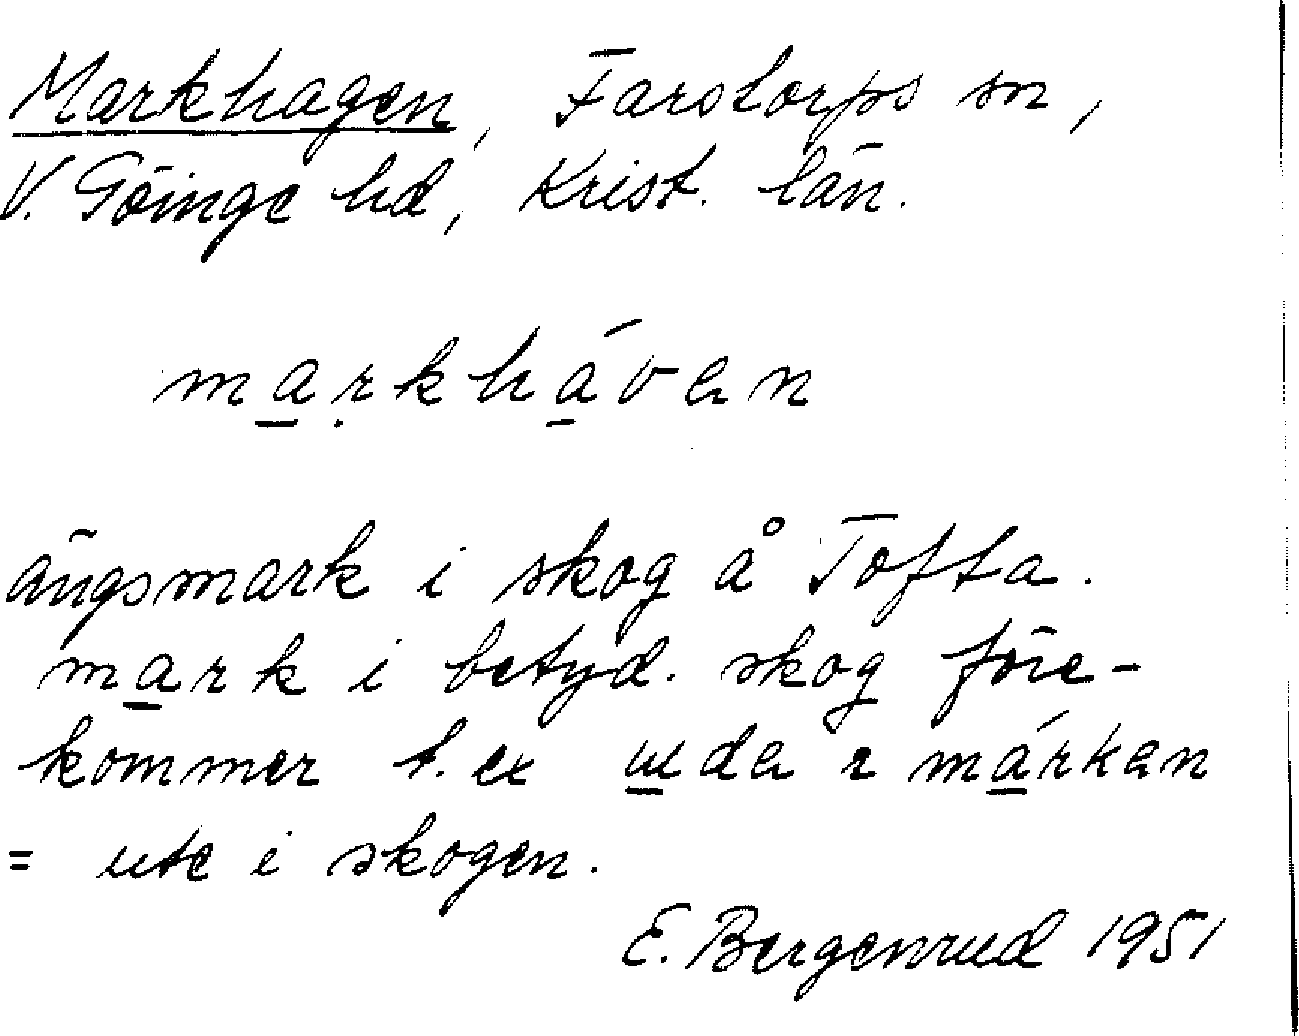 Markhagen, Farstorps sn,
V. Göinge hd, Krist. län.
markhávan
ängsmark i skog å Tofta.
mark i betyd. skog före-
kommer t.ex uda i márkan
= ute i skogen.
E. Bergenrud 1951